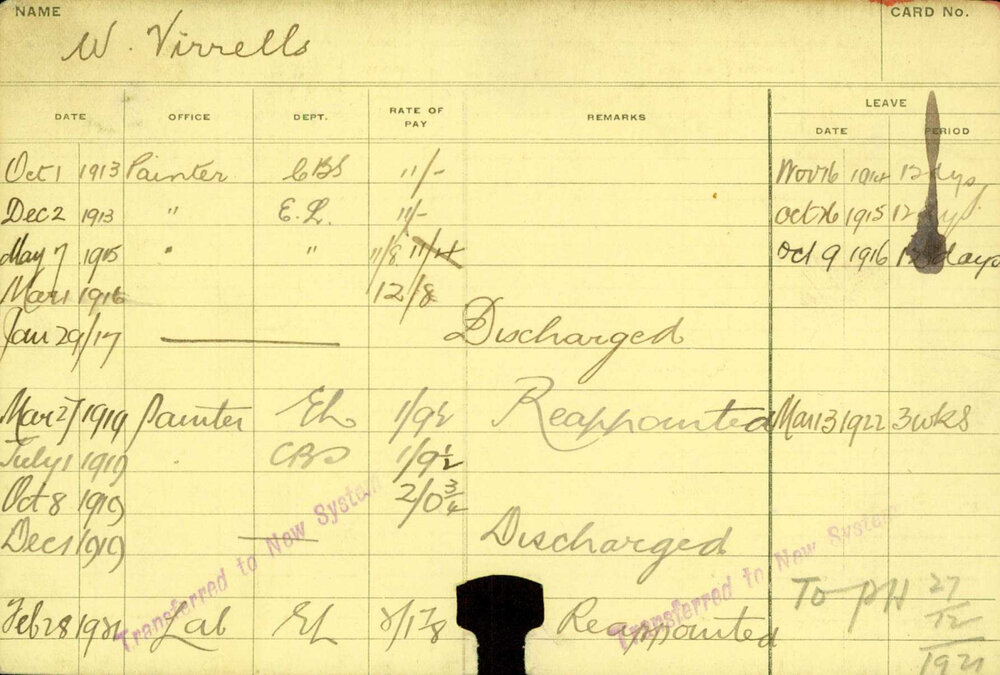 NAME CARD No.
W. Virrells
DATE OFFICE DEPT. RATE OF PAY REMARKS LEAVE
DATE PERIOD
Oct 1 1913 Painter CBS 11/- Nov 16 1914 12 days
Dec 2 1913 " E.L. 11/- Oct 26 1915 12
May 7 1915 " " 11/8 11/4 Oct 9 1916 12 days
Mar 1 1916 12/8
Jan 29/17 Discharged
Mar 27 1919 Painter EL 1/9½ Reappointed Mar 13 1922 3 wks
July 1 1919 " CBS 1/9½
Oct 8 1919 2/0¾
Dec 1 1919 Discharged
Transferred to New System
Transferred to New System
To PH 27/12/1921
Feb 28 Lab EL Reappointed